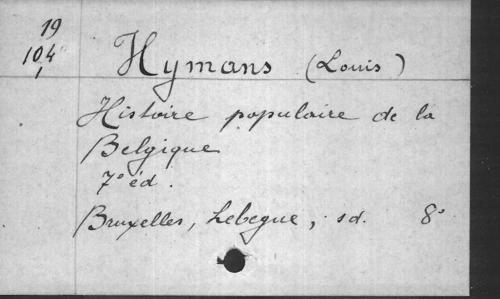 19
104
1
Hymans (Louis)
Histoire populaire de la
Belgique
7° éd.
Bruxelles, Lebegue, sd. 8°